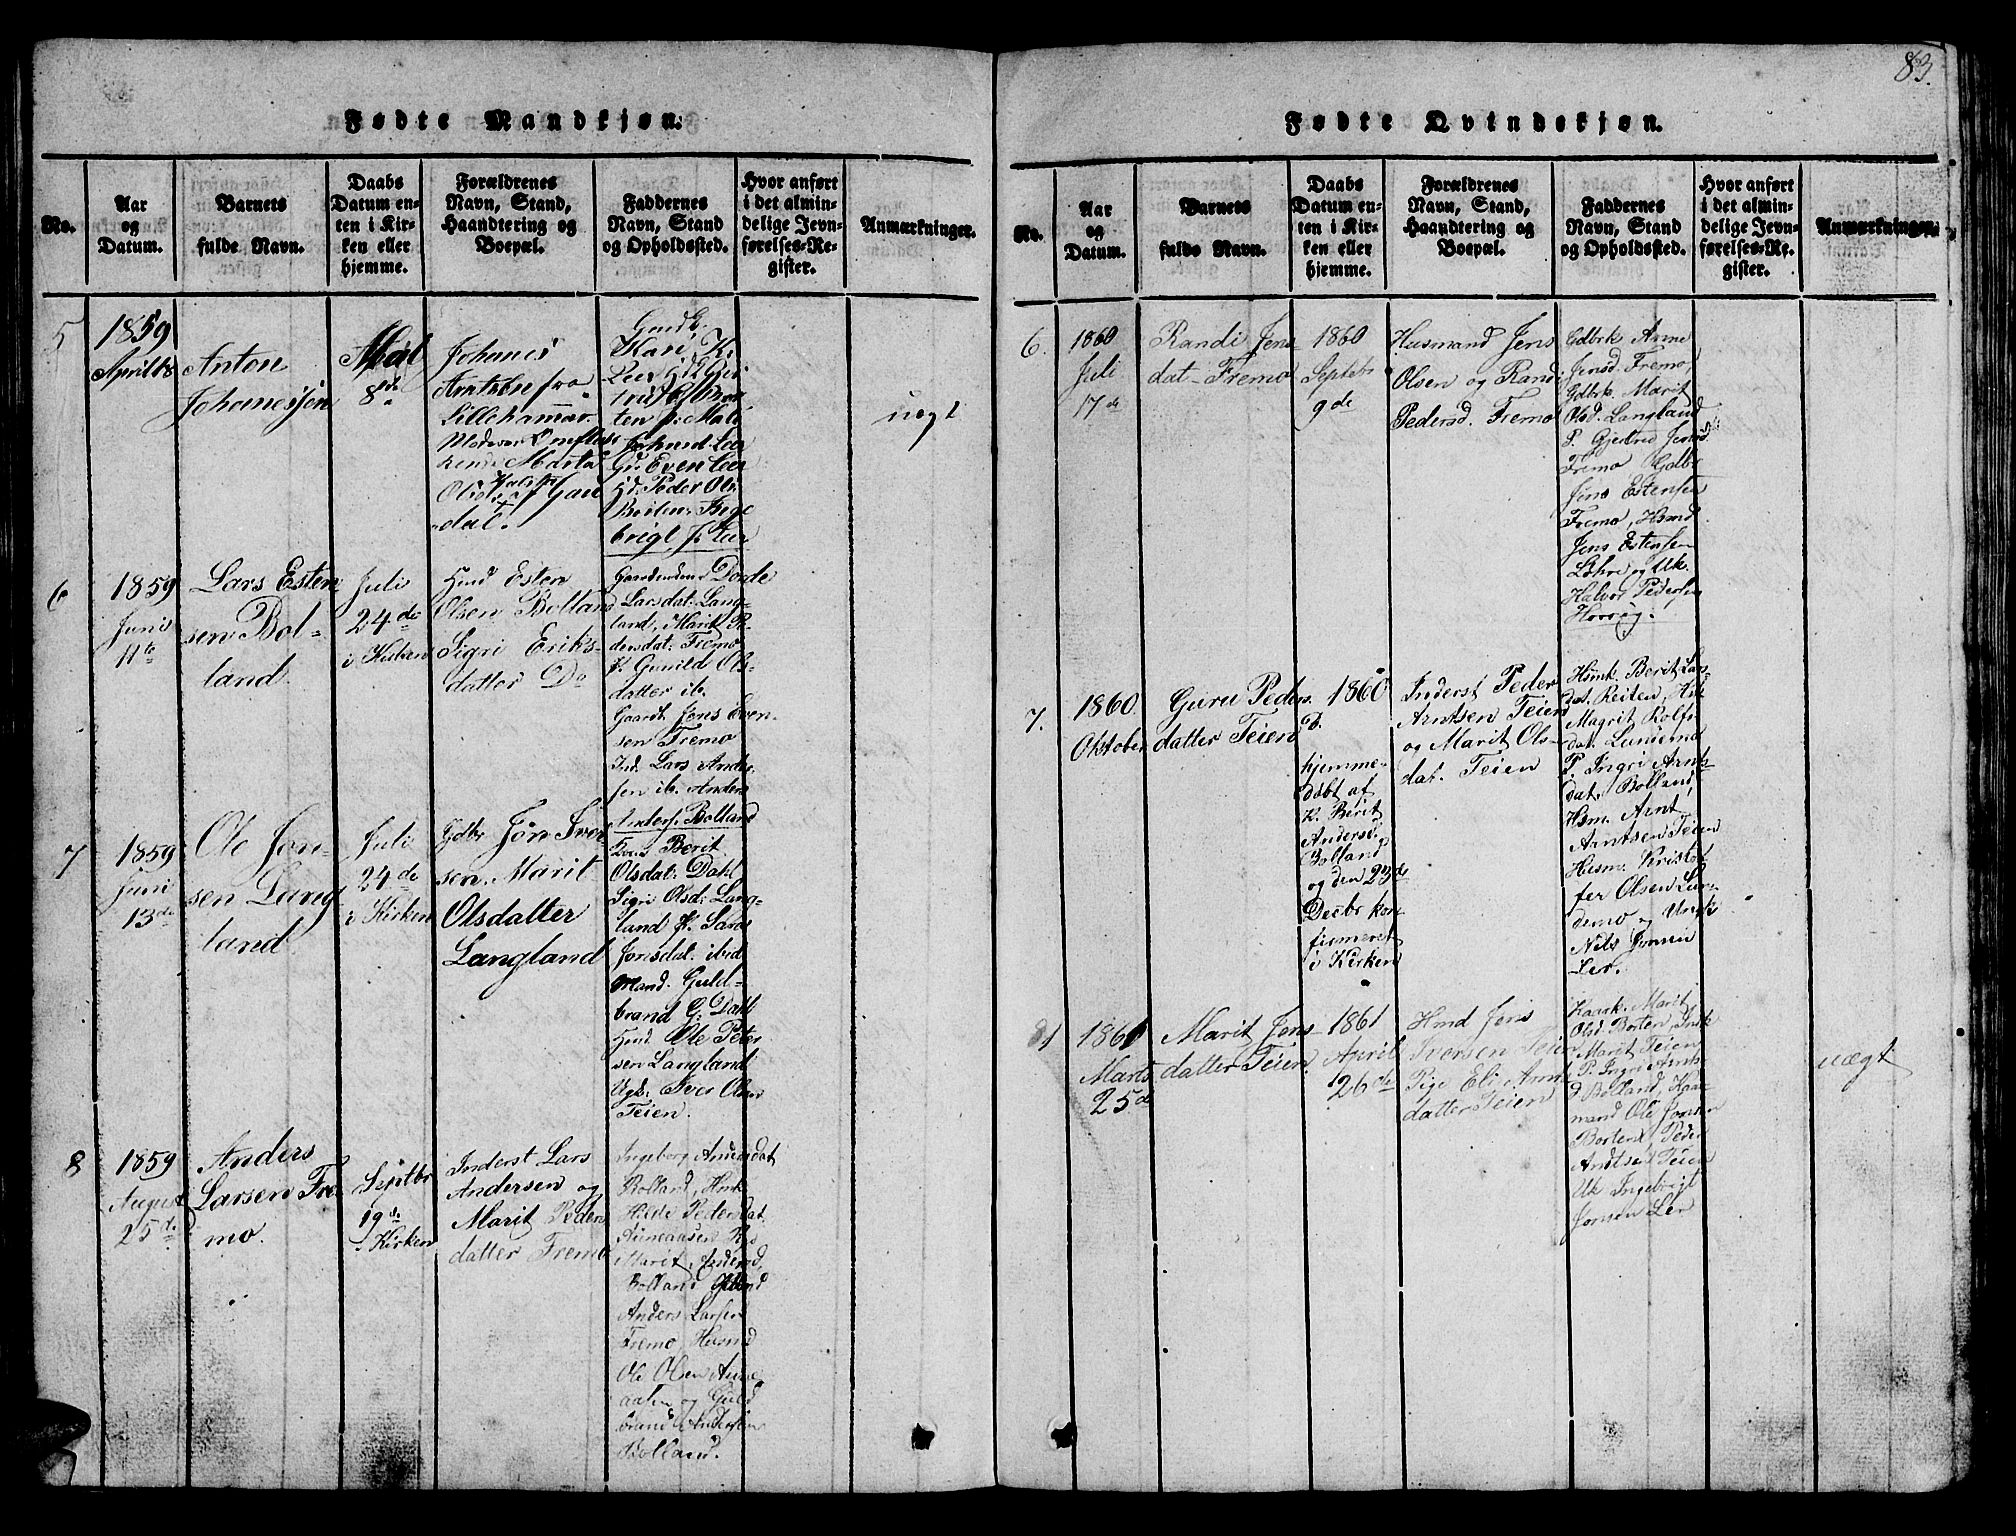 Fødte Mandkjøn.
No.
Aar
og
Datum.
Barnets
fulde Navn.
Daabs
Datum en-
ten i Kir-
ken eller
hjemme.
Forældrenes
Navn, Stand,
Haandtering og
Boepæl.
Faddernes
Navn, Stand
og Opholdssted.
Hvor anført
i det almin-
delige Jevn-
førelses-Re-
gister.
Anmærkninger.
5
1859
April 18
Anton
Johanesen
Mai
8de
Johanes
Arntsen fra
Lillehamar
Marta
dal.
Kari
Leer
ten p. Mali
Leer
Gd. Even Leer
Hd. Peder Ols.
brigt J. Leer
uægt
6
1859
Juni
11te
Lars Esten
sen Bol-
land
Juli
24de
i Kirken
Hmd Esten
Olsen Bolland
Sigri Eriks-
datter Do
Dorte
Larsdat. Lang-
land, Marit Pe-
dersdat. Fremo
P. Gunild Ols-
datter ib.
Gaardt. Jens Even-
sen Fremo
Ind. Lars Ander-
sen ib. Anders
Anders. Bolland
7
1859
Juni
13de
Ole Jon-
sen Lang
land
Juli
24de
i Kirken
Gdbr Jon Iver
sen. Marit
Olsdatter
Langland
Kone Berit
Olsdat: Dahl
Sigri Olsd: Lang-
land P. Sara
Jonsdat. ibid
Mand. Guld-
brand G. Dahl
Hmd Ole Peter
sen Langland
Ugk: Iver Olsen
Teien.
8
1859
August
25de
Anders
Larsen Fre-
mo.
Septbr
19de
i Kirken
Inderst Lars
Andersen og
Marit Peders
datter Fremo
Ingeborg Andersdat
Bolland, Hmk.
Hilde Pedersdat.
Auneaasen
Marit Andersd.
Bolland
Anders Larsen
Fremo Husmd
Ole Olsen Aune
aasen og Guld
brand Andersen
Bolland.
83.
Fødte Qvindekjøn.
No.
Aar
og
Datum.
Barnets
fulde Navn.
Daabs
Datum en-
ten i Kir-
ken eller
hjemme.
Forældrenes
Navn, Stand,
Haandtering og
Boepæl.
Faddernes
Navn, Stand
og Opholdssted.
Hvor anført
i det almin-
delige Jevn-
førelses-Re-
gister.
Anmærkninger.
6.
1860
Juli
17de
Randi Jens
dat. Fremo
1860
Septbr
9de
Husmand Jens
Olsen og Randi
Pedersd. Fremo
Gdbrk. Anne
Jensd. Fremo,
Gdbrk. Marit
Olsd. Langland
P. Gjertrud Jensd.
Fremo Gdbr
Jens Estensen
Fremo, Hsmd
Jens Estensen
Løhre og Uk.
Halvor Pedersen
Horsøg.
7.
1860
Oktober
Guru Peders
datter Teien
1860
D.
hjemme-
døbt af
K. Berit
Andersd.
Bolland
og den 23de
Decbr kon
firmeret
i Kirken
Inderst Peder
Arntsen Teien
og Marit Ols-
dat. Teien
Hsmk. Berit Lar-
dat. Reiten,
Magrit Rolfs
dat. Lundemo
P. Ingri Arnts-
dat. Bolland,
Hsm. Arnt
Arntsen Teien
Husm. Kristof
fer Olsen Lun-
demo og Ungk
Nils Jonsen
Ler.
8
1861
Marts
25de
Marit Jens-
datter Teien
1861
April
26de
Hmd Jens
Iversen Teien
Pige Eli Arnt
datter Teien
Kaark. Marit
Olsd. Borten, Insk
Marit Teien
P. Ingri Arnts
d. Bolland, Kaa-
mand Ole Jonsen
Borten, Peder
Arntsen Teien
Uk Ingebrigt
Jonsen Ler
uægt